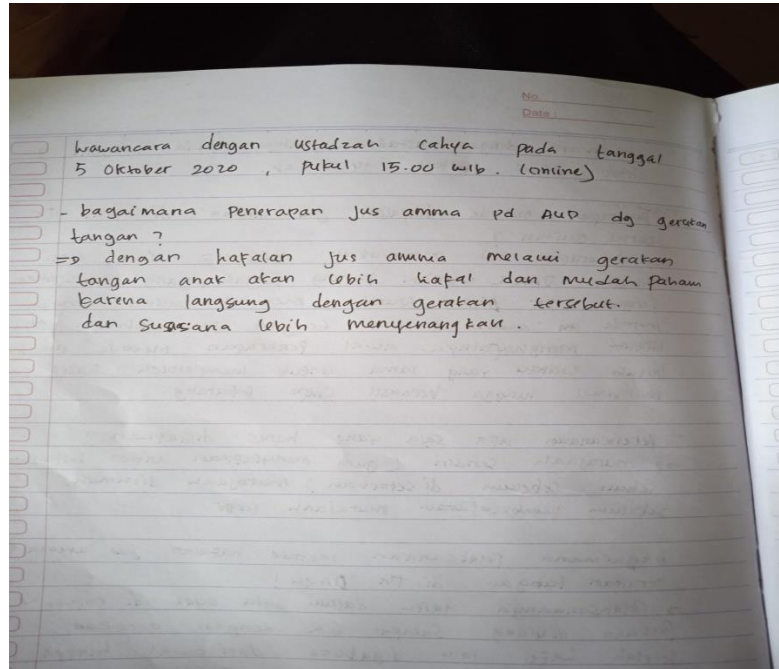 No.
Date :
wawancara dengan ustadzah cahya pada tanggal
5 Oktober 2020 , pukul 15.00 wib. (online)
- bagaimana penerapan jus amma pd AUD dg gerakan
tangan ?
=> dengan hafalan jus amma melalui gerakan
tangan anak akan lebih hafal dan mudah paham
karena langsung dengan gerakan tersebut.
dan suasana lebih menyenangkan .